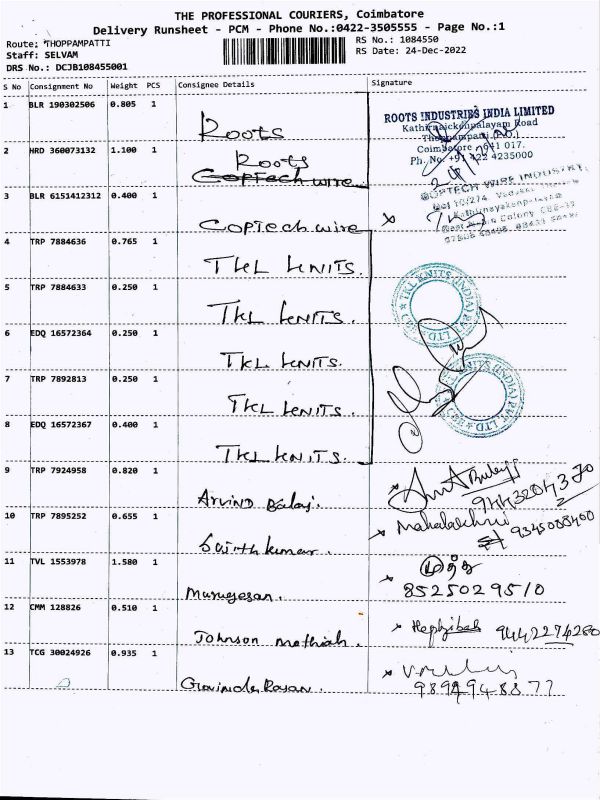 THE PROFESSIONAL COURIERS, Coimbatore
Delivery Runsheet - PCM - Phone No.:0422-3505555 - Page No.:1
Route: THOPPAMPATTI
RS No.: 1084550
Staff: SELVAM
RS Date: 24-Dec-2022
DRS No.: DCJB108455001
S No Consignment No Weight PCS Consignee Details Signature
1 BLR 190302506 0.805 1 Roots
ROOTS INDUSTRIES INDIA LIMITED
Kathirnaickenpalayam Road
Thoppampatti (Po.)
Coimbatore - 641 017.
Ph. No. +91 422 4235000
2 HRD 360073132 1.100 1 Roots
Coptech wire
3 BLR 6151412312 0.400 1 Coptech wire
COPTECH WIRE INDUSTRY
4 TRP 7884636 0.765 1 TKL KNITS.
5 TRP 7884633 0.250 1 TKL KNITS.
TKL KNITS (INDIA) PVT. LTD
6 EDQ 16572364 0.250 1 TKL KNITS.
7 TRP 7892813 0.250 1 TKL KNITS.
TKL KNITS (INDIA) PVT. LTD
8 EDQ 16572367 0.400 1 TKL KNITS.
9 TRP 7924958 0.820 1 Arvind Balaj.
9443204370
10 TRP 7895252 0.655 1 Saithkumar.
Mahalakshmi
9345088400
11 TVL 1553978 1.580 1 Murugesan.
8525029510
12 CMM 128826 0.510 1 Johnson mathiah.
Hephzibah 9442274280
13 TCG 30024926 0.935 1 Govinda Rajan.